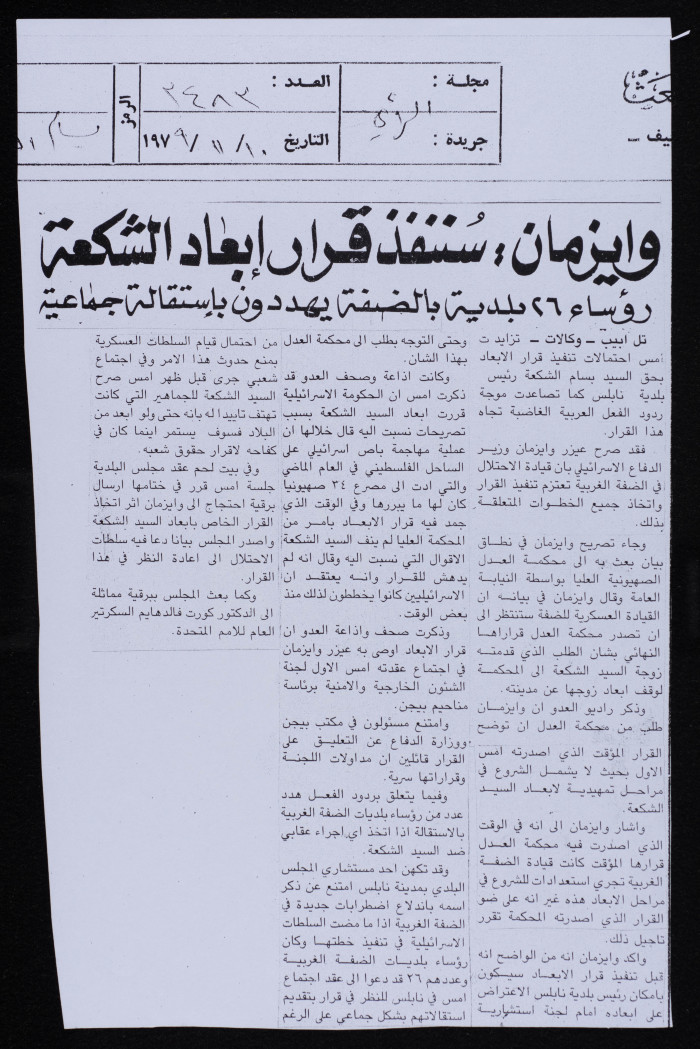 مجلة :
الرأي
جريدة :
العدد :
٣٤٨٣
التاريخ ١٠/ ١١/ ١٩٧٩
الرمز
بسام
وايزمان : سننفذ قرار إبعاد الشكعة
رؤساء ٢٦ بلدية بالضفة يهددون بإستقالة جماعية
تل أبيب – وكالات – تزايدت
امس احتمالات تنفيذ قرار الابعاد
بحق السيد بسام الشكعة رئيس
بلدية نابلس كما تصاعدت موجة
ردود الفعل العربية الغاضبة تجاه
هذا القرار.
فقد صرح عيزر وايزمان وزير
الدفاع الاسرائيلي بان قيادة الاحتلال
في الضفة الغربية تعتزم تنفيذ القرار
واتخاذ جميع الخطوات المتعلقة
بذلك.
وجاء تصريح وايزمان في نطاق
بيان بعث به الى محكمة العدل
الصهيونية العليا بواسطة النيابة
العامة وقال وايزمان في بيانه ان
القيادة العسكرية للضفة ستنتظر الى
ان تصدر محكمة العدل قرارها
النهائي بشان الطلب الذي قدمته
زوجة السيد الشكعة الى المحكمة
لوقف ابعاد زوجها عن مدينته.
وذكر راديو العدو ان وايزمان
طلب من محكمة العدل ان توضح
القرار المؤقت الذي اصدرته امس
الاول بحيث لا يشمل الشروع في
مراحل تمهيدية لابعاد السيد
الشكعة.
واشار وايزمان الى انه في الوقت
الذي اصدرت فيه محكمة العدل
قرارها المؤقت كانت قيادة الضفة
الغربية تجري استعدادات للشروع في
مراحل الابعاد هذه غير انه على ضو
القرار الذي اصدرته المحكمة تقرر
تاجيل ذلك.
واكد وايزمان انه من الواضح انه
قبل تنفيذ قرار الابعاد سيكون
بامكان رئيس بلدية نابلس الاعتراض
على ابعاده امام لجنة استشارية
وحتى التوجه بطلب الى محكمة العدل
بهذا الشان.
وكانت اذاعة وصحف العدو قد
ذكرت امس ان الحكومة الاسرائيلية
قررت ابعاد السيد الشكعة بسبب
تصريحات نسبت اليه قال خلالها ان
عملية مهاجمة باص اسرائيلي على
الساحل الفلسطيني في العام الماضي
والتي ادت الى مصرع ٣٤ صهيونيا
كان لها ما يبررها وفي الوقت الذي
جمد فيه قرار الابعاد بامر من
المحكمة العليا لم ينف السيد الشكعة
الاقوال التي نسبت اليه وقال انه لم
يدهش للقرار وانه يعتقد ان
الاسرائيليين كانوا يخططون لذلك منذ
بعض الوقت.
وذكرت صحف واذاعة العدو ان
قرار الابعاد اوصى به عيزر وايزمان
في اجتماع عقدته امس الاول لجنة
الشئون الخارجية والامنية برئاسة
مناحيم بيجن.
وامتنع مسئولون في مكتب بيجن
ووزارة الدفاع عن التعليق على
القرار قائلين ان مداولات اللجنة
وقراراتها سرية.
وفيما يتعلق بردود الفعل هدد
عدد من رؤساء بلديات الضفة الغربية
بالاستقالة اذا اتخذ اي اجراء عقابي
ضد السيد الشكعة.
وقد تكهن احد مستشاري المجلس
البلدي بمدينة نابلس امتنع عن ذكر
اسمه باندلاع اضطرابات جديدة في
الضفة الغربية اذا ما مضت السلطات
الاسرائيلية في تنفيذ خطتها وكان
رؤساء بلديات الضفة الغربية
وعددهم ٢٦ قد دعوا الى عقد اجتماع
امس في نابلس للنظر في قرار بتقديم
استقالاتهم بشكل جماعي على الرغم
من احتمال قيام السلطات العسكرية
بمنع حدوث هذا الامر وفي اجتماع
شعبي جرى قبل ظهر امس صرح
السيد الشكعة للجماهير التي كانت
تهتف تاييدا له بانه حتى ولو ابعد من
البلاد فسوف يستمر اينما كان في
كفاحه لاقرار حقوق شعبه.
وفي بيت لحم عقد مجلس البلدية
جلسة امس قرر في ختامها ارسال
برقية احتجاج الى وايزمان اثر اتخاذ
القرار الخاص بابعاد السيد الشكعة
واصدر المجلس بيانا دعا فيه سلطات
الاحتلال الى اعادة النظر في هذا
القرار.
وكما بعث المجلس ببرقية مماثلة
الى الدكتور كورت فالدهايم السكرتير
العام للامم المتحدة.